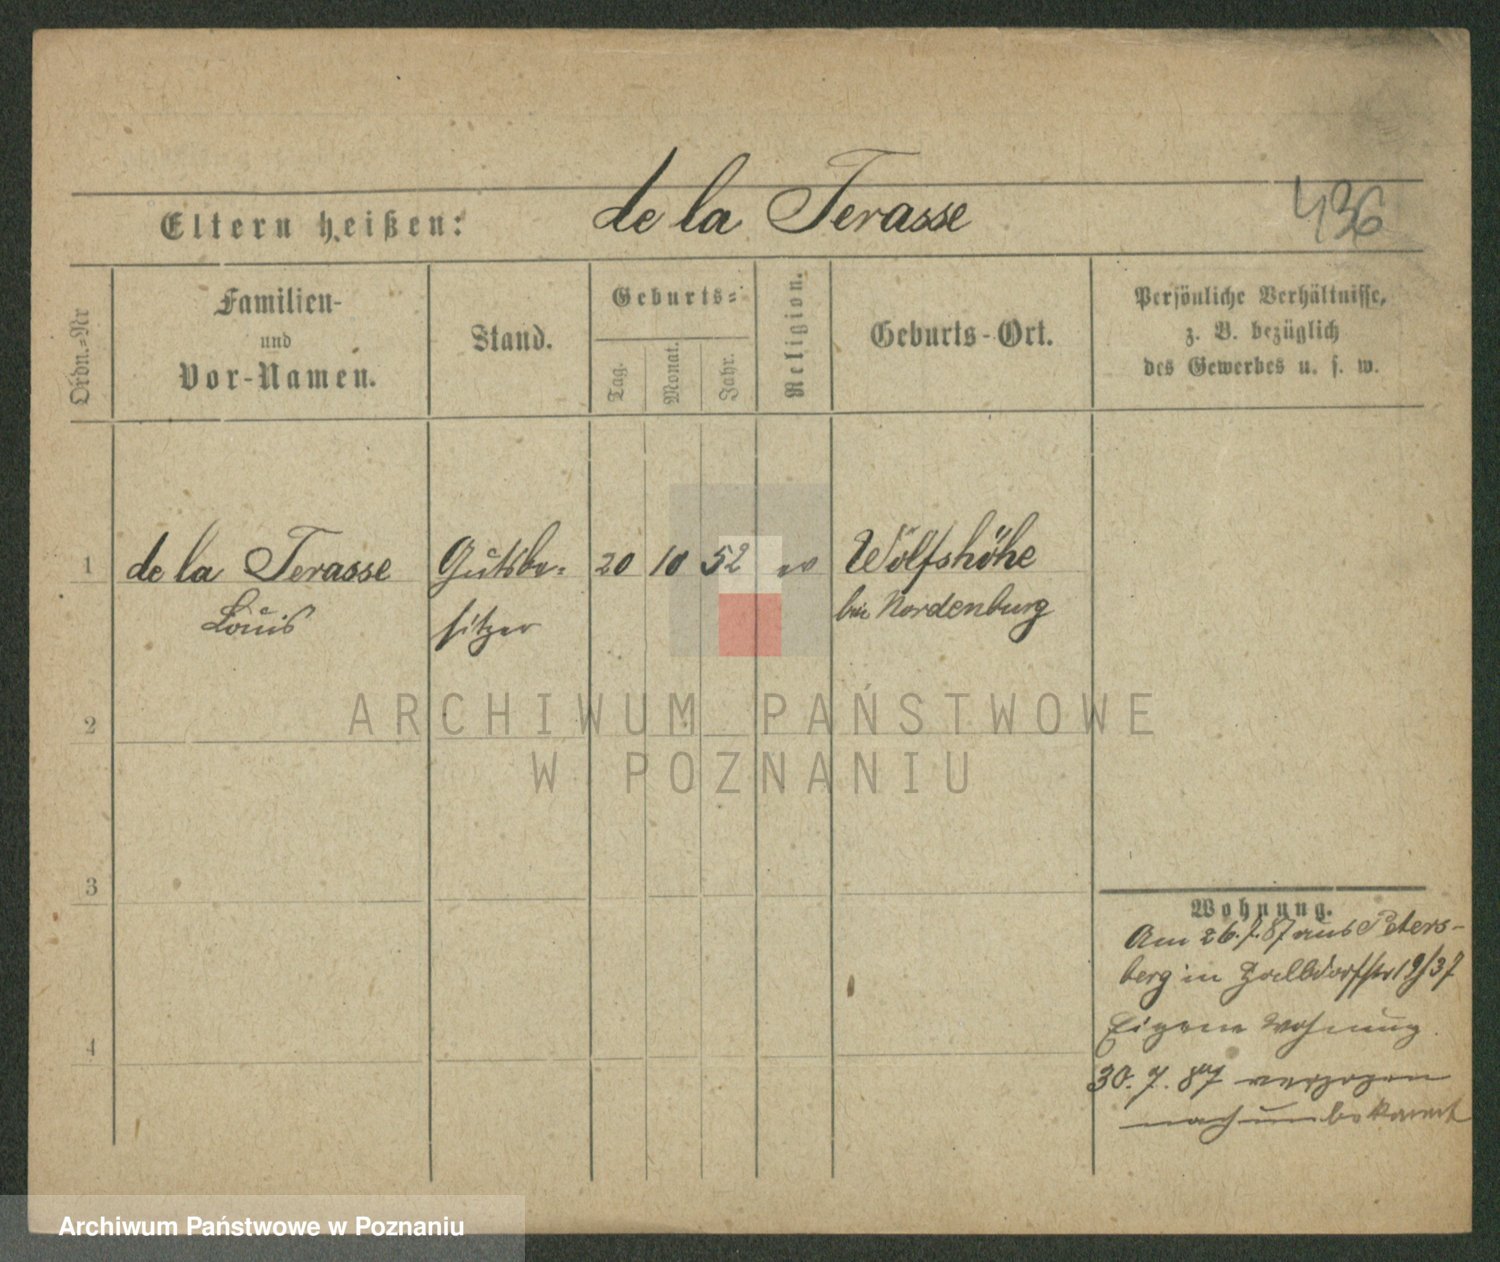 436
Eltern heißen: de la Terasse
Ordn.=Nr
Familien-
und
Vor-Namen.
Stand.
Geburts=
Tag.
Monat.
Jahr.
Religion.
Geburts-Ort.
Persönliche Verhältnisse,
z. B. bezüglich
des Gewerbes u. s. w.
1 de la Terasse Gutsbe= 20 10 52 ev Wolfshöhe
Louis sitzer bei Nordenburg
ARCHIWUM PAŃSTWOWE
W POZNANIU
2
3
4
Wohnung.
Am 26.7.87 aus Peters-
berg in
Eigene Wohnung.
30.7.87 verzogen
nach unbekannt
Archiwum Państwowe w Poznaniu